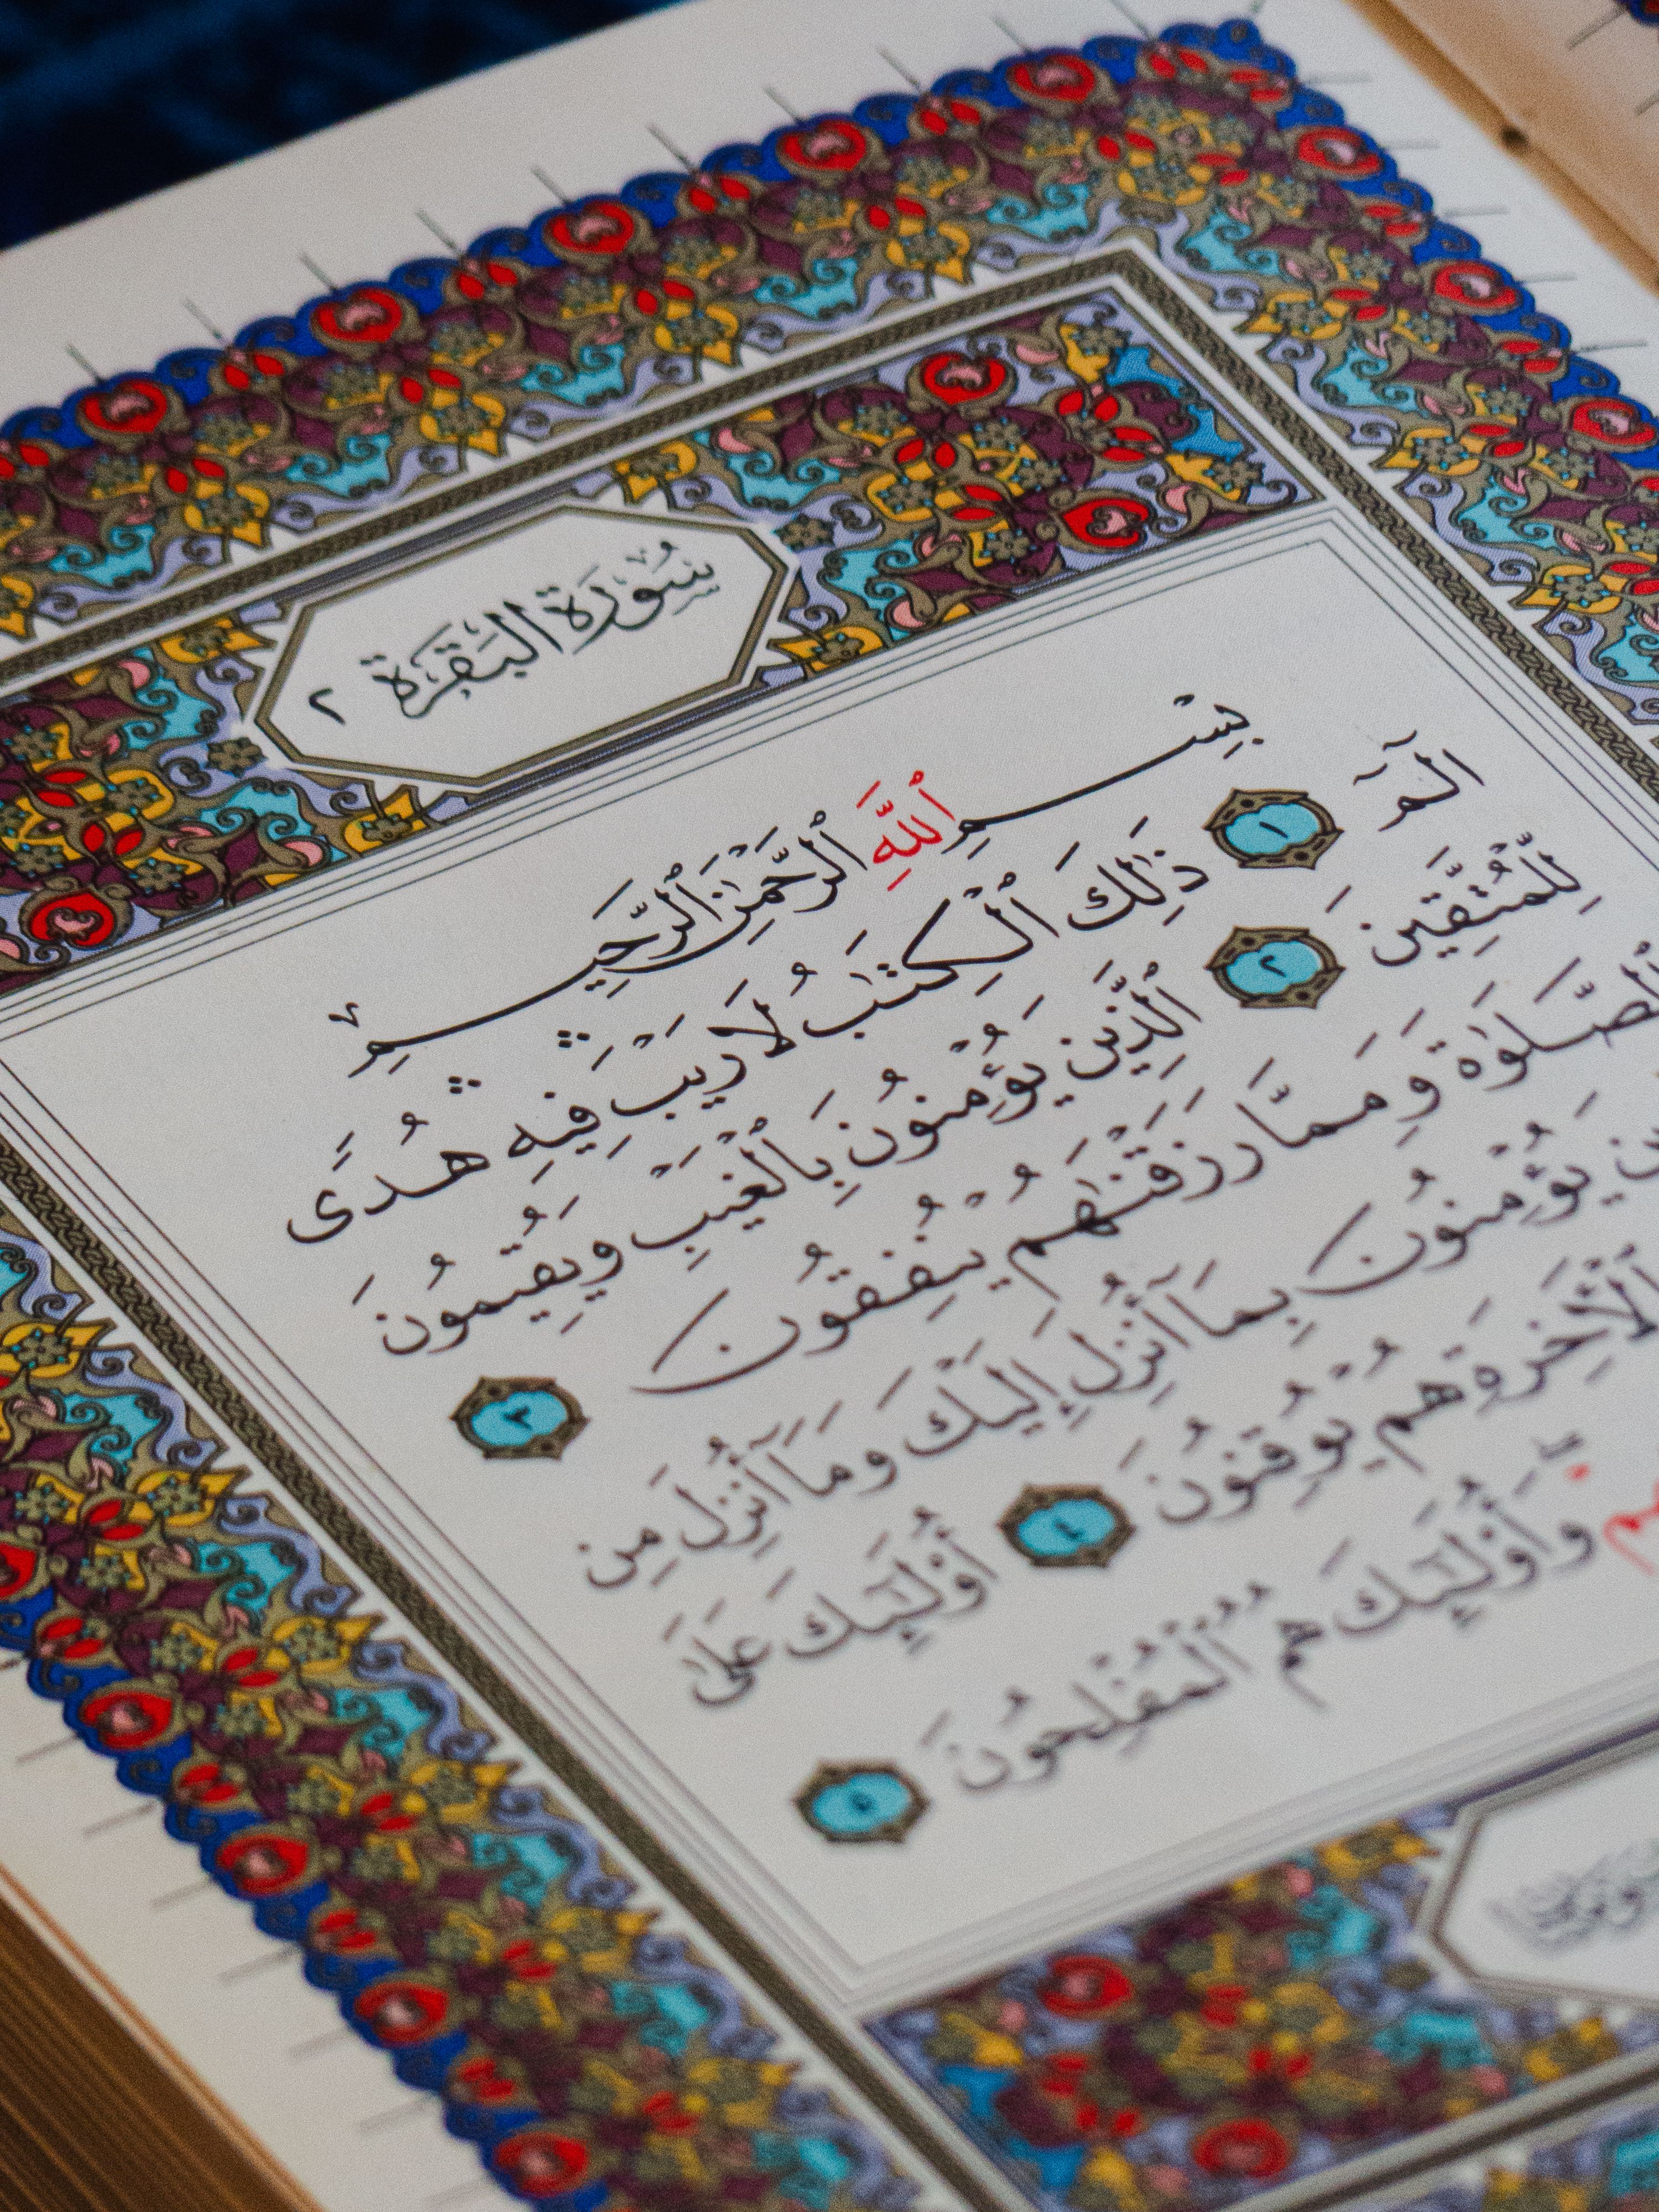 سُورَةُ البَقَرَة ٢
بِسْمِ ٱللَّهِ ٱلرَّحْمَٰنِ ٱلرَّحِيمِ
الٓمٓ ١ ذَٰلِكَ ٱلْكِتَٰبُ لَا رَيْبَ ۛ فِيهِ ۛ هُدًى
لِّلْمُتَّقِينَ ٢ ٱلَّذِينَ يُؤْمِنُونَ بِٱلْغَيْبِ وَيُقِيمُونَ
ٱلصَّلَوٰةَ وَمِمَّا رَزَقْنَٰهُمْ يُنفِقُونَ ٣
يُؤْمِنُونَ بِمَآ أُنزِلَ إِلَيْكَ وَمَآ أُنزِلَ مِن
هُمْ يُوقِنُونَ ٤ أُو۟لَٰٓئِكَ عَلَىٰ
وَأُو۟لَٰٓئِكَ هُمُ ٱلْمُفْلِحُونَ ٥